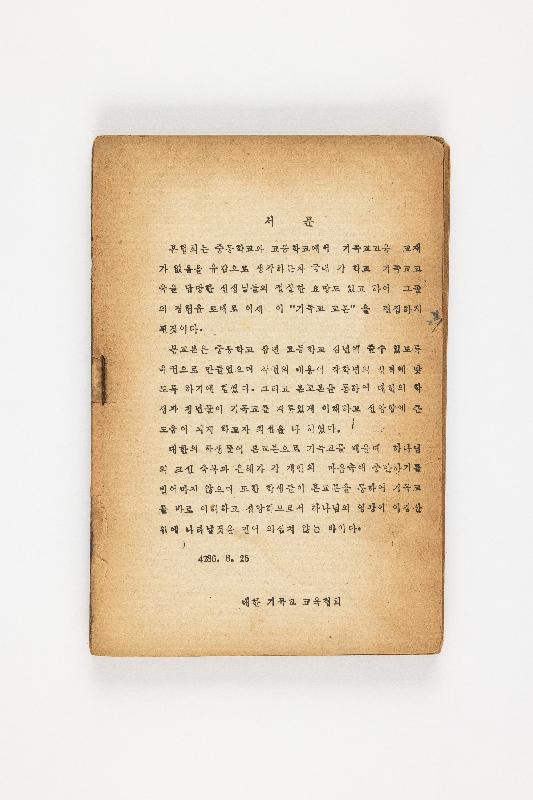 서 문
본협회는 중등학교와 고등학교에서 기독교교육 교재
가 없음을 유감으로 생각하는차 국내 각 학교 기독교교
육을 담당한 선생님들의 절실한 요망도 있고 하여 그들
의 경험을 토대로 이제 이 "기독교 교본" 을 편집하게
된것이다.
본교본은 중등학교 삼년 고등학교 삼년에 쓸수 있도록
육권으로 만들었으며 각권의 내용이 각학년의 정도에 맞
도록 하기에 힘썼다. 그리고 본교본을 통하여 대한의 학
생과 청년들이 기독교를 재미있게 이해하고 신앙함에 큰
도움이 되게 하고자 최선을 다 하였다.
대한의 학생들이 본교본으로 기독교를 배울때 하나님
의 크신 축복과 은혜가 각 개인의 마음속에 충만하기를
빌어마지 않으며 또한 학생들이 본교본을 통하여 기독교
를 바로 이해하고 신앙함으로서 하나님의 영광이 이강산
위에 나타날것을 믿어 의심치 않는 바이다.
4286. 8. 25
대한 기독교 교육협회